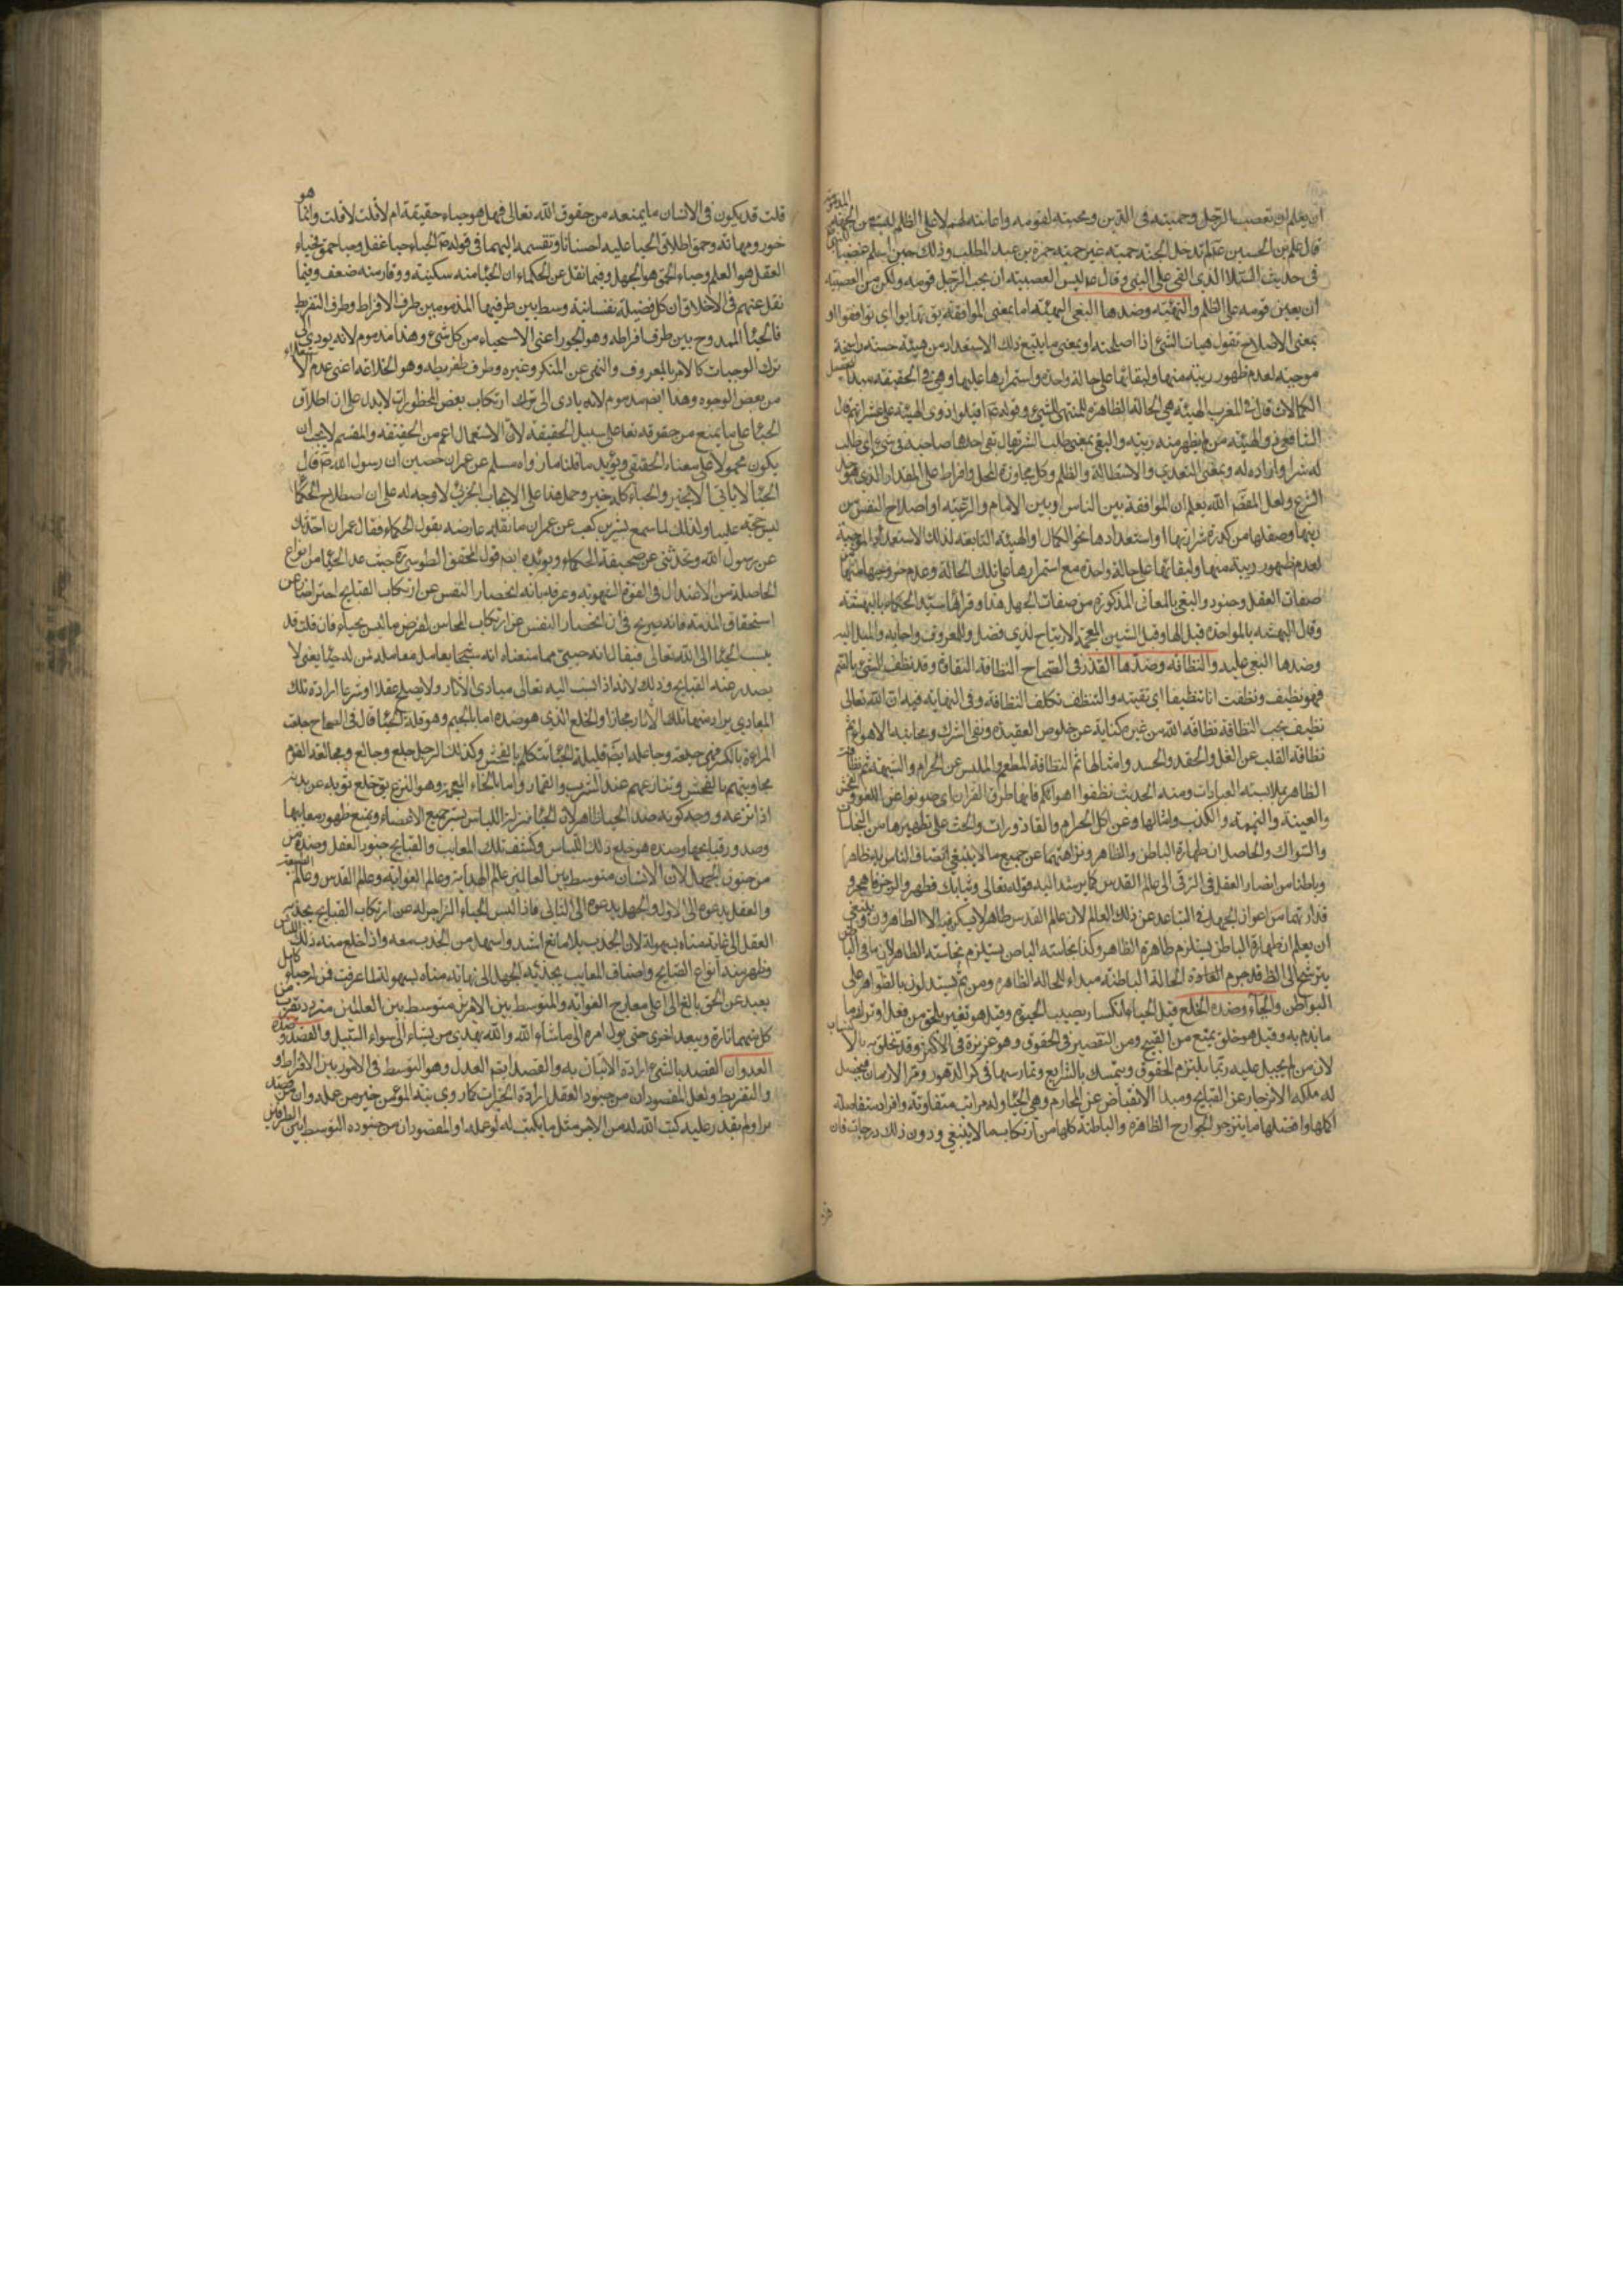 ان يعلم ان تعصب الرجل وحميته في الدين ومحبته لقومه واعانته لهم لا على الظلم ليست من
قال علي بن الحسين ع لم تدخل الجنة حمية غير حمية حمزة بن عبد المطلب وذلك حين اسلم غضبا
في حديث السلا الذي القي على النبي وقال ع ليس العصبية ان يحب الرجل قومه ولكن من العصبية
ان يعين قومه على الظلم والتهيئة وضدها البغي التهيئة اما بمعنى الموافقة يق تهايوا اي توافقوا او
بمعنى الاصلاح تقول هيات الشئ اذا اصلحته او بمعنى ما يتبع ذلك الاستعداد من هيئة حسنة راسخة
موجبة لعدم ظهور ريبة منها ولبقائها على حالة واحدة واستمرارها عليها وهي في الحقيقة مبدأ
الكمالات قال في المغرب الهيئة هي الحالة الظاهرة للمتهيئ للشئ وقوله ع اقيلوا ذوي الهيئة عثراتهم قال
الشافعي ذو الهيئة من لم يظهر منه ريبة والبغي بمعنى طلب الشر يقال بغى احدهما صاحبه في شئ اي طلب
له شرا واراده له وبمعنى التعدي والاستطالة والظلم وكل مجاوزة المحل وافراط على المقدار الذي هو حد
الشرع ولعل المقص الله يعلم ان الموافقة بين الناس وبين الامام والرغبة او اصلاح النفس من
رينها وصقلها من كدرة شرارتها او استعدادها نحو الكمال او الهيئة التابعة لذلك الاستعداد الموجبة
لعدم ظهور ريبة منها ولبقائها على حالة واحدة مع استمرارها على تلك الحالة وعدم خروجها عنها من
صفات العقل وجنوده والبغي بالمعاني المذكورة من صفات الجهل هذا وقراها سيد الحكماء بالبهشة
وقال البهشة بالموحدة قبل الهاء وقبل الشين المعجمة الارتياح لذي فضل وللمعروف واحبابه والميل اليه
وضدها البغي عليه والنظافة وضدها القذر في الصحاح النظافة النقاوة وقد نظف الشئ بالضم
فهو نظيف ونظفته انا تنظيفا اي نقيته والتنظف تكلف النظافة وفي النهاية فيه ان الله تعالى
نظيف يحب النظافة نظافة الله من غيره كناية عن خلوص العقيدة ونفي الشرك ومجانبة الاهواء ثم
نظافة القلب عن الغل والحقد والحسد وامثالها ثم النظافة المطعم والملبس عن الحرام والشبهة ثم نظافة
الظاهر بملابسة العبادات ومنه الحديث نظفوا افواهكم فانها طرق القران اي صونوا عن اللغو والفحش
والغيبة والنميمة والكذب وامثالها وعن اكل الحرام والقاذورات والحث على تطهيرها من النجاسات
والسواك والحاصل ان طهارة الباطن والظاهر ونزاهتهما عن جميع ما لا ينبغي اتصاف الناس به ظاهرا
وباطنا من انصار العقل في الترقي الى عالم القدس كما يرشد اليه قوله تعالى وثيابك فطهر والرجز فاهجر و
قذارتهما من اعوان الجهل في التباعد عن ذلك العالم لان عالم القدس طاهر لا يسكن فيه الا الطاهرون وينبغي
ان يعلم ان طهارة الباطن يستلزم طهارة الظاهر وكذا نجاسة الباطن يستلزم نجاسة الظاهر لان ما في الباطن
يترشح الى الظاهر جرم الحالة الباطنة مبداء للحالة الظاهرة ومن ثم يستدلون بالظواهر على
البواطن والحياء وضده الخلع قيل الحياء انكسار يصيب الحيوة وقيل هو تغير يلحق من فعل او ترك ما
ما يذم به وقيل هو خلق يمنع من القبيح ومن التقصير في الحقوق وهو غريزة في الاكثر وقد يتخلق به بالاكتساب
لان من لم يجبل عليه ربما يلتزم الحقوق ويتمسك بالشرايع وتمارسها في كر الدهور ومر الازمان فيحصل
له ملكة الانزجار عن القبايح ومبدأ الانقباض عن المحارم وهي الحياء وله مراتب متفاوتة وافراد متفاضلة
اكملها وافضلها ما ينزجر الجوارح الظاهرة والباطنة كلها من ارتكاب ما لا ينبغي ودون ذلك درجات فان
قلت قد يكون في الانسان ما يمنعه من حقوق الله تعالى فهل هو حياء حقيقة ام لا قلت لا وانما هو
خور ومهانة وحمق اطلاق الحياء عليه احسانا وتقسيمه اليهما في قوله ع الحياء حياءان حياء عقل وحياء حمق فحياء
العقل هو العلم وحياء الحمق هو الجهل وفيما نقل عن الحكماء ان الحياء منه سكينة ووقار ومنه ضعف وفيما
نقل عنهم في الاخلاق ان كل فضيلة نفسانية وسط بين طرفيها المذمومين طرف الافراط وطرف التفريط
فالحياء الممدوح بين طرف افراطه وهو الخور اعني الاستحياء من كل شئ وهذا مذموم لانه يؤدي الى
ترك الواجبات كالامر بالمعروف والنهي عن المنكر وغيره وطرف تفريطه وهو الخلاعة اعني عدم الاستحياء
من بعض الوجوه وهذا ايضا مذموم لانه يادى الى ترك ارتكاب بعض المحظورات لا يدل على ان اطلاق
الحياء على ما يمنع من حقوقه تعا على سبيل الحقيقة لان الاستعمال اعم من الحقيقة والمقسم لا يجب ان
يكون محمولا على معناه الحقيقي ويؤيد ما قلنا ما رواه مسلم عن عمران حصين ان رسول الله ص قال
الحياء لا ياتي الا بخير والحياء كله خير وحمل هذا على الايجاب الجزئي لا وجه له على ان اصطلاح الحكماء
ليس حجة علينا ولذلك لما سمع بشر بن كعب عن عمران ما نقله عارضه بقول الحكماء فقال عمران احدثك
عن رسول الله وتحدثني عن صحيفة الحكماء ويؤيده ايضا قول المحقق الطوسي ره حيث عد الحياء من انواع
الحاصلة من الاعتدال في القوة الشهوية وعرفه بانه انحصار النفس عن ارتكاب القبايح احترازا عن
استحقاق المذمة فانه صريح في ان انحصار النفس عن ارتكاب المحاسن لغرض ما ليس بحياء فان قلت قد
ينسب الحياء الى الله تعالى فيقال انه حيي فما معناه قلت معناه انه سبحانه يعامل معاملة من له حياء يعني لا
يصدر عنه القبايح وذلك لانه اذا نسب اليه تعالى مبادى الاثار ولا يصلح عقلا او شرعا ارادة تلك
المبادى يراد منها تلك الاثار مجازا والخلع الذي هو ضده اما بالجيم وهو قلة الحياء قال في الصحاح جلعت
المراءة بالكسر فهي جلعة وجالعة ايضا قليلة الحياء تتكلم بالفحش وكذلك الرجل جلع وجالع ومجالعة القوم
مجاوبتهم بالفحش وتنازعهم عند الشرب والقمار واما بالخاء المعجمة وهو النزع يق خلع ثوبه عن بدنه
اذا نزعه ووجه كونه ضد الحياء ظاهر لان الحياء بمنزلة اللباس يستر جميع الاعضاء ويمنع ظهور معايبها
وصدور قبايحها وضده هو خلع ذلك اللباس وكشف تلك المعايب والقبايح جنود العقل وضده من
من جنود الجهل لان الانسان متوسط بين العالمين عالم الهداية وعالم الغواية وعالم القدس وعالم الطبيعة
والعقل يدعوه الى الاول والجهل يدعوه الى الثاني فاذا لبس الحياء الزاجر له عن ارتكاب القبايح يجذبه
العقل الى غاية مناه بسهولة لان الجذب بلا مانع اشد واسهل من الجذب معه واذا خلع منه ذلك اللباس
وظهر منه انواع القبايح واصناف المعايب يجذبه الجهل الى نهاية مناه بسهولة لما عرفت فمن له حياء كامل
يبعد عن الحق بالغا الى اعلى معارج الغواية والمتوسط بين الامرين متوسط بين العالمين متردد يقرب من
كل منهما تارة ويبعد اخرى حتى يؤل امره الى ما شاء الله والله يهدي من يشاء الى سواء السبيل والقصد وضده
العدوان القصد بالشئ ارادة الاتيان به والقصد ايضا العدل وهو التوسط في الامور بين الافراط و
والتفريط ولعل المقصود ان من جنود العقل ارادة الخيرات كما روي نية المؤمن خير من عمله وان من قصد
برا ولم يقدر عليه كتب الله له من الاجر مثل ما يكتب له لو عمله او المقصود ان من جنوده التوسط بين الطرفين